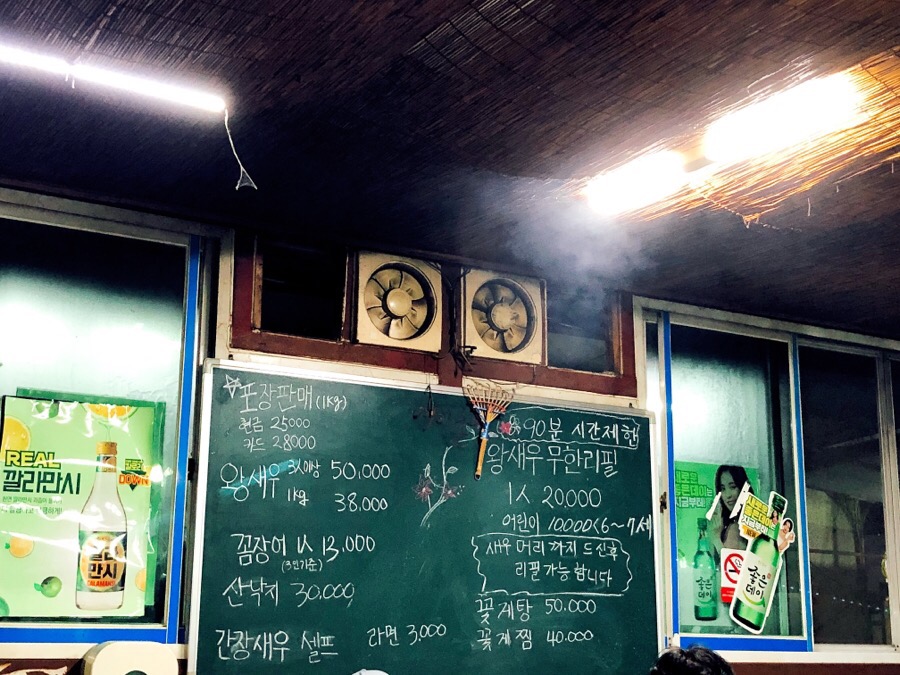 ☆포장판매(1kg)
현금 25000
카드 28000
왕새우 3人이상 50,000
1kg 38.000
꼼장어 1人 13,000
(3인기준)
산낙지 30,000
간장새우 셀프 라면 3,000
90분 시간제한
왕새우 무한리필
1人 20,000
어린이 10000(6~7세
새우 머리까지 드신후
리필가능합니다
꽃게탕 50.000
꽃게찜 40.000
REAL
깔라만시
DOWN
만시
CALAMANSI
새로운
좋은데이는
지금부터!
좋은
데이
좋은
데이